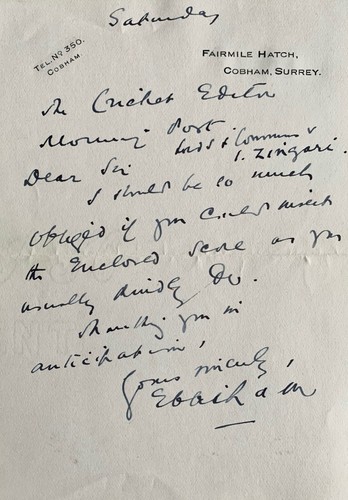 Saturday
TEL. No 350.
COBHAM
FAIRMILE HATCH,
COBHAM, SURREY.
The Cricket Editor
Morning Post
Lords & Commons v
I. Zingari.
Dear Sir
I should be so much
obliged if you could insert
the enclosed score as you
usually kindly do.
Thanking you in
anticipation,
Yours sincerely,
Ebbisham